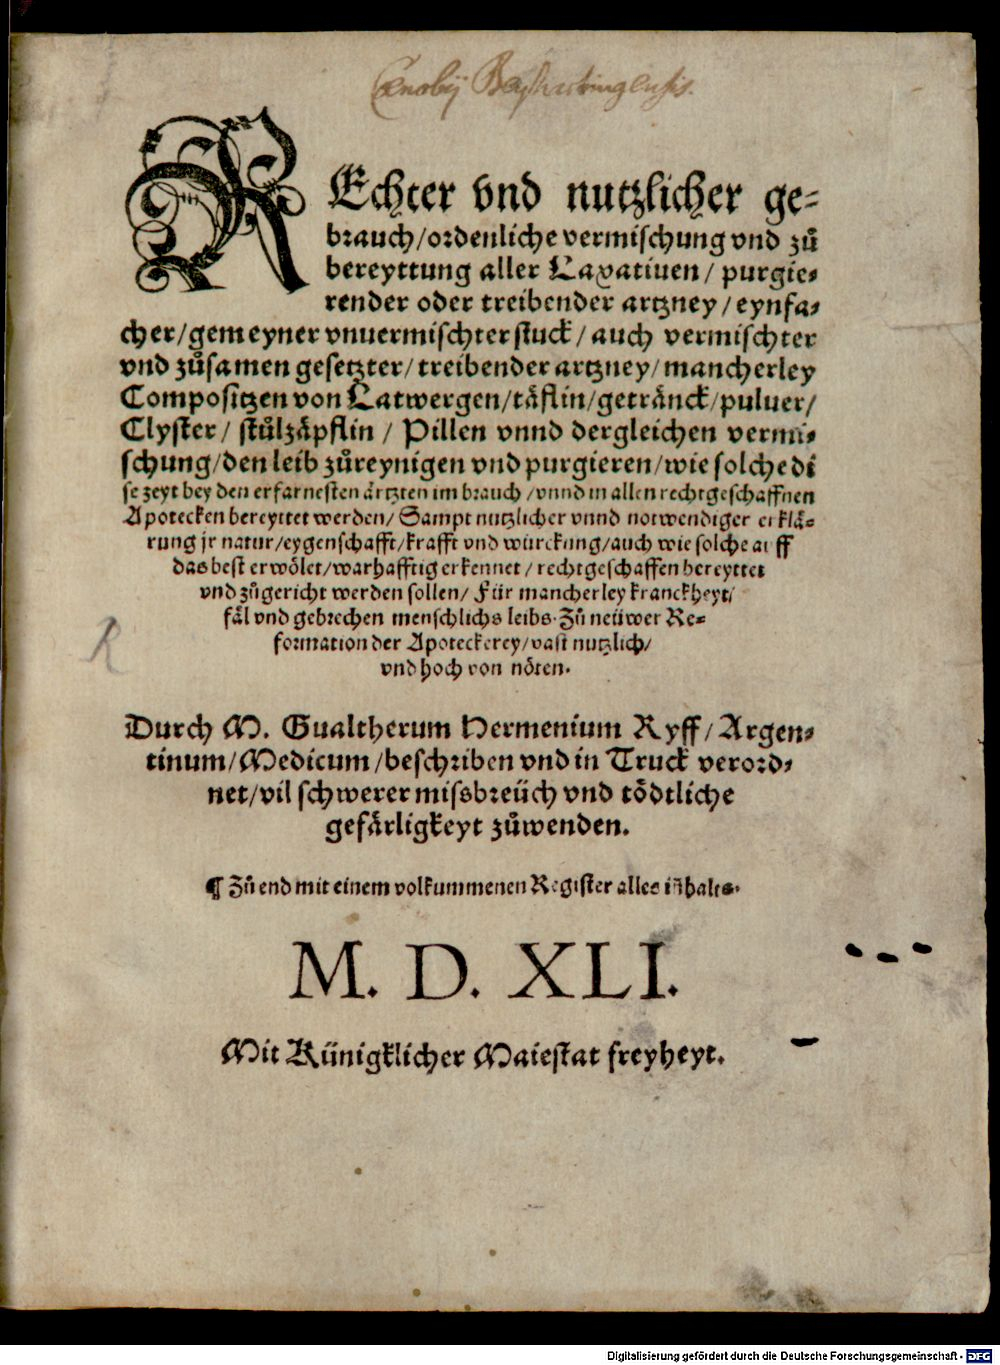 Cœnobij
REchter vnd nutzlicher ge⸗
brauch/ordenliche vermischung vnd zuͦ
bereyttung aller Laxatiuen/ purgie⸗
render oder treibender artzney/eynfa⸗
cher/gemeyner vnuermischter stuck/auch vermischter
vnd zuͦsamen gesetzter/treibender artzney/mancherley
Compositzen von Latwergen/täflin/getränck/puluer/
Clyster/ stuͦlzäpflin / Pillen vnnd dergleichen vermi⸗
schung/den leib zuͦreynigen vnd purgieren/wie solche di
se zeyt bey den erfarnesten ärtzten im brauch /vnnd in allen rechtgeschaffnen
Apotecken bereyttet werden/ Sampt nutzlicher vnnd notwendiger erklä⸗
rung jr natur/eygenschafft/krafft vnd würckung/auch wie solche auff
das best erwölet/warhafftig erkennet / rechtgeschaffen bereyttet
vnd zuͦgericht werden sollen/ Für mancherley kranckheyt/
fäl vnd gebrechen menschlichs leibs. Zuͦ neüwer Re⸗
formation der Apoteckerey/vast nutzlich/
vnd hoch von nöten.
Durch M. Gualtherum Hermenium Ryff/Argen⸗
tinum/Medicum/beschriben vnd in Truck verord⸗
net/vil schwerer missbreüch vnd tödtliche
gefärligkeyt zuͦwenden.
¶ Zuͦ end mit einem volkummenen Register alles iñhalts.
M. D. XLI.
Mit Künigklicher Maiestat freyheyt.
Digitalisierung gefördert durch die Deutsche Forschungsgemeinschaft - DFG